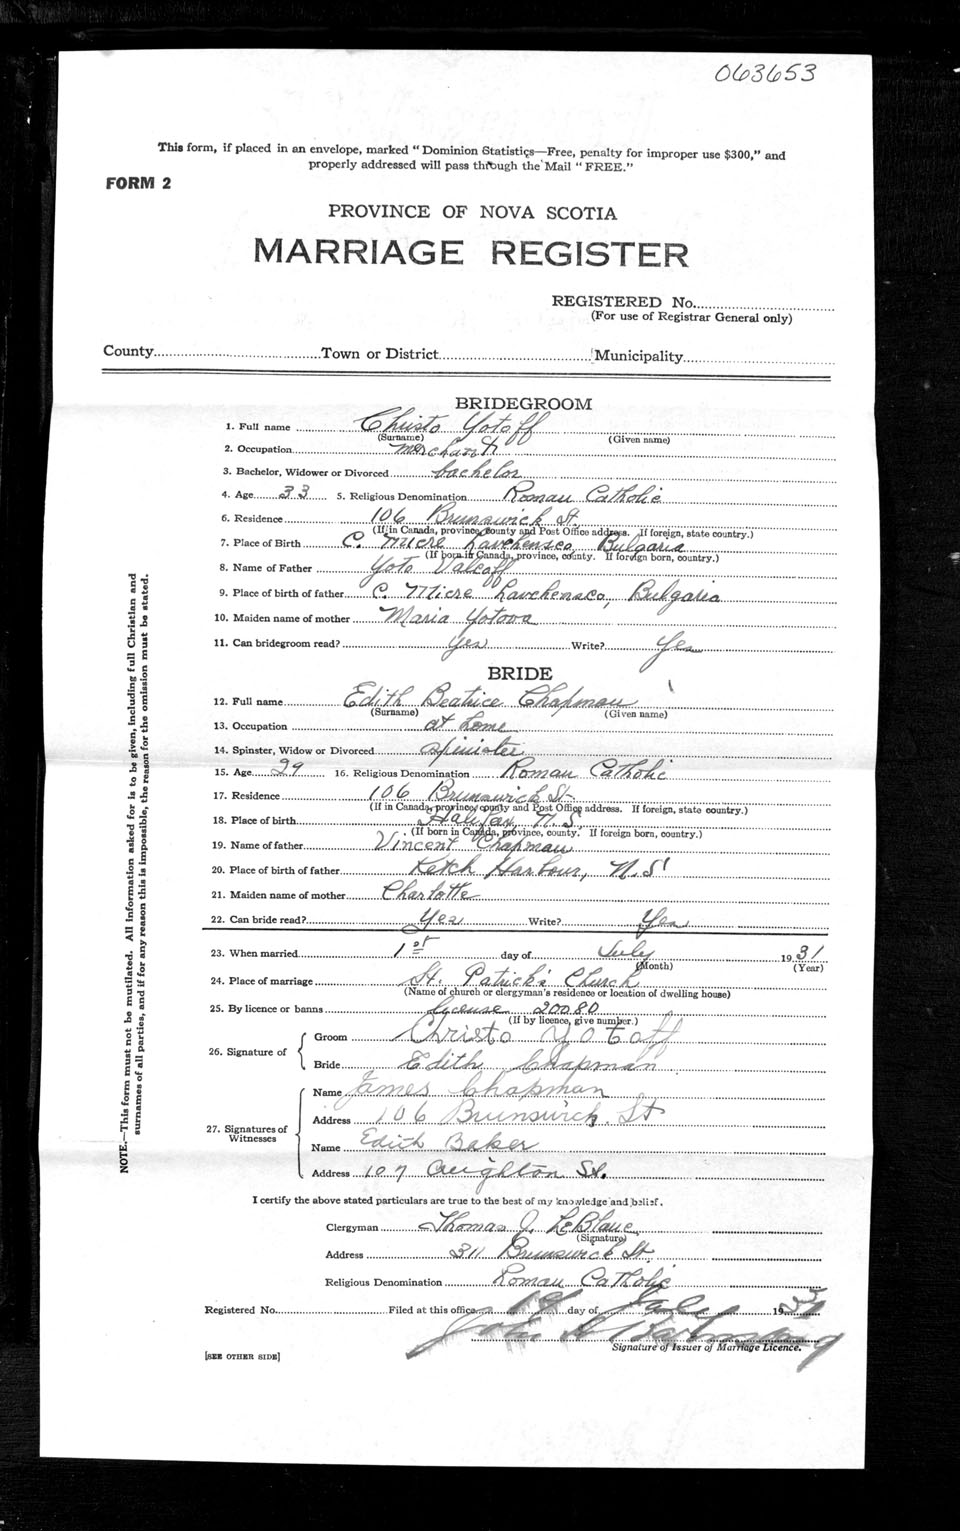 063653
This form, if placed in an envelope, marked "Dominion Statistics—Free, penalty for improper use $300," and
properly addressed will pass through the Mail "FREE."
FORM 2
PROVINCE OF NOVA SCOTIA
MARRIAGE REGISTER
REGISTERED No.
(For use of Registrar General only)
County Town or District Municipality
BRIDEGROOM
1. Full name Christo Yotoff
(Surname) (Given name)
2. Occupation merchant
3. Bachelor, Widower or Divorced bachelor
4. Age 33 5. Religious Denomination Roman Catholic
6. Residence 106 Brunswick St.
(If in Canada, province, county and Post Office address. If foreign, state country.)
7. Place of Birth C. Bulgaria
(If born in Canada, province, county. If foreign born, country.)
8. Name of Father Yoto Valcoff
9. Place of birth of father C. Bulgaria
10. Maiden name of mother Maria Yotova
11. Can bridegroom read? Yes Write? Yes
BRIDE
12. Full name Edith Beatrice Chapman
(Surname) (Given name)
13. Occupation at home
14. Spinster, Widow or Divorced spinister
15. Age 29 16. Religious Denomination Roman Catholic
17. Residence 106 Brunswick St
(If in Canada, province, county and Post Office address. If foreign, state country.)
18. Place of birth Halifax, N.S.
(If born in Canada, province, county. If foreign born, country.)
19. Name of father Vincent Chapman
20. Place of birth of father Ketch Harbour, N.S.
21. Maiden name of mother Charlotte
22. Can bride read? Yes Write? Yes
23. When married 1st day of July 1931
(Month) (Year)
24. Place of marriage St. Patrick's Church
(Name of church or clergyman's residence or location of dwelling house)
25. By licence or banns lycense 20080
(If by licence, give number.)
26. Signature of Groom Christo Yotoff
Bride Edith Chapman
27. Signatures of Witnesses Name James Chapman
Address 106 Brunswick St
Name Edith Baker
Address 107 Creighton St.
I certify the above stated particulars are true to the best of my knowledge and belief.
Clergyman Thomas J. LeBlanc
(Signature)
Address 311 Brunswick St.
Religious Denomination Roman Catholic
Registered No. Filed at this office day of July 19
John
Signature of Issuer of Marriage Licence.
[SEE OTHER SIDE]
NOTE.—This form must not be mutilated. All information asked for is to be given, including full Christian and
surnames of all parties, and if for any reason this is impossible, the reason for the omission must be stated.